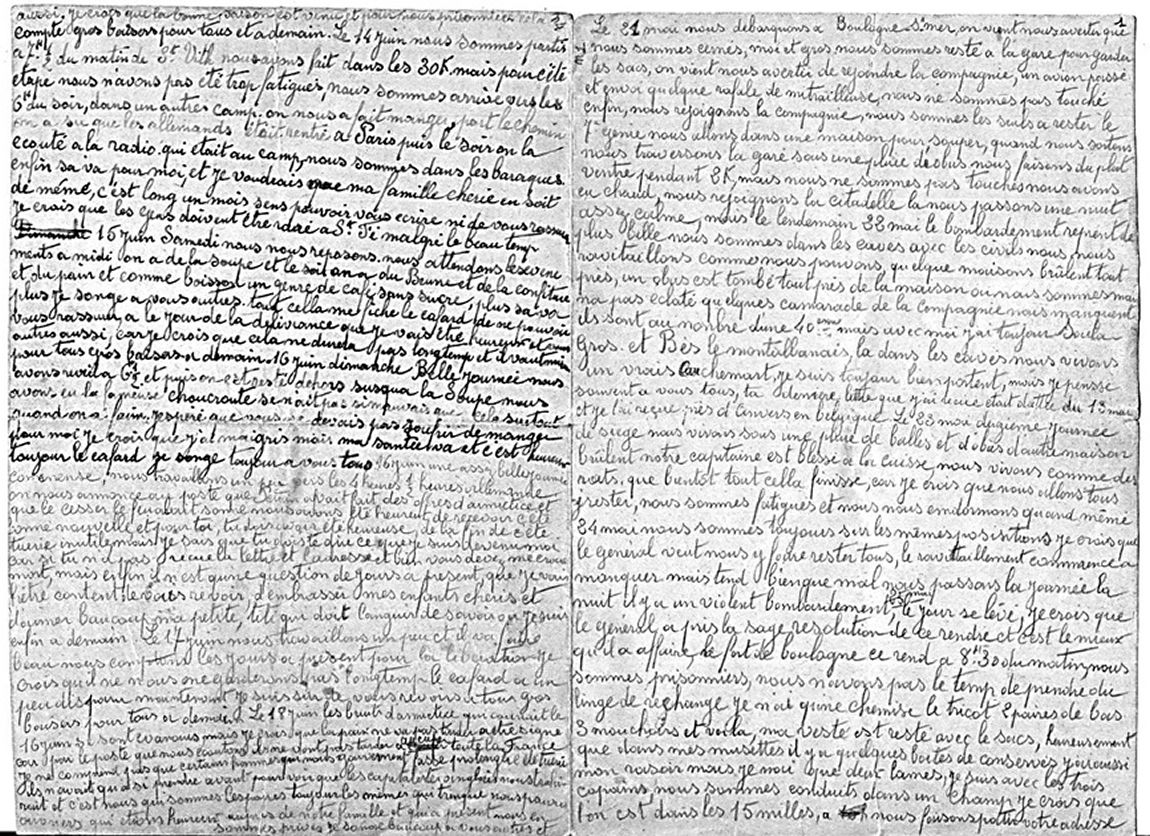 1
Le 21 mai nous debarquons a Boulogne S. mer, on vient nous avertir que
nous sommes cernés, moi et gros, nous sommes resté a la gare pour garder
les sacs, on vient nous avertir de rejoindre la compagnie, un avion passe
et envoi quelque rafale de mitrailleuse, nous ne sommes pas touché
enfin, nous rejoignons la compagnie, nous sommes les seuls a rester le
7e genie nous allons dans une maison pour souper, quand nous sortons
nous traversons la gare sous une pluie d'obus nous faisons du plat
ventre pendant 2K, mais nous ne sommes pas touchés nous avons
eu chaud, nous rejoignons la citadelle la nous passons une nuit
assez calme, mais le lendemain 22 mai le bombardement reprent de
plus belle nous sommes dans les caves avec les civils nous nous
ravitaillons comme nous pouvons, quelque maisons brûlent tout
près, un obus est tombé tout près de la maison ou nous sommes mais
na pas eclaté quelques camarade de la compagnie nous manquent
ils sont au nombre d'une 40 mais avec moi j'ai toujour Soula
Gros. et Bès le montalbanais, la dans les caves nous vivons
un vrais Cauchemart, je suis toujour bien portent, mais je pensse
souvent a vous tous, ta dernière lettre que j'ai reçue était dattée du 13 mai
et je l'ai reçue près d'Anvers en Belgique Le 23 mai deuxieme journée
de siege nous vivons sous une pluie de balles et d'obus d'autre maison
brûlent notre capitaine est blessé a la cuisse, nous vivons comme des
rats, que bientôt tout cella finisse, car je crois que nous allons tous
y rester, nous sommes fatigues et nous nous endormons quand même
24 mai nous sommes toujours sur les mêmes posisitions je crois que
le general veut nous y faire rester tous, le ravitaillement commence a
manquer mais tend bien que mal nous passons la journée la
nuit il y a un violent bombardement, le jour se lève, je crois que
25 mai
le general a pris la sage resolution de ce rendre et c'est le mieux
qu'il a affaire, le fort de boulogne ce rend a 8H30 du matin, nous
sommes prisonniers, nous navons pas le temp de prendre du
linge de rechange je n'ai qu'une chemise le tricot 2 paires de bas
3 mouchoirs et voila, ma veste est resté avec le sacs, heureusement
que dans mes musettes il y a quelques boites de conserves j'ai aussi
mon rasoir mais je n'ai que deux lames, je suis avec les trois
copains, nous sommes conduits dans un champ je crois que
l'on est dans les 15 milles, a nous faisons passer votre adresse
aussi, je crois que la bonne saison est venu et pour nous prisonniers
compte gros baisers pour tous et a demain. Le 14 juin nous sommes partis
a 7H½ du matin de St Vith nous avons fait dans les 30K. mais pour cété
etape nous n'avons pas été trop fatigues, nous sommes arrivé vers les
6H du soir, dans un autres camp. on nous a fait manger, par le chemin
on a su que les allemands était rentré a Paris puis le soir on la
ecouté a la radio. qui était au camp, nous sommes dans les baraques
enfin sa va pour moi, et je voudrais que ma famille cherie en soit
de même, c'est long un mois sens pouvoir vous ecrire ni de vous rassurer
je crois que les gens doivent être
malgré le beau temp
15 juin Samedi nous nous reposons. nous attendons les evene
ments a midi on a de la soupe et le soir on a du Beurre et de la confiture
et du pain et comme boisson un genre de café sans sucre, plus sa va
plus je songe a vous outres. tout cella me fiche le cafard de ne pouvoir
vous rassurer, a le jour de la delivrance que je vais être heureux et vous
autres aussi, car je crois que cela ne durera pas longtemp et il vaut mieux
pour tous gros baisers a demain. 16 juin dimanche Belle journée nous
avons reveil a 6H et puis on est resté dehors jusqua la Soupe nous
avons eu la fameuse choucroute se n'ait pas si mauvais que cela surtout
quand on a faim. j'espere que vous ne devais pas soufrir de manger
pour moi je crois que j'ai maigris mais ma santée va et c'est heureux
toujour le cafard je songe toujour a vous tous 16 juin une assez belle journée
nous travaillons un peu vers les 4 heures ½ heures allemande
on nous annonce au poste que Petain avait fait des offres d'armistice et
que le cesser le feu
bonne nouvelle et pour toi, tu dois avoir été heureuse de la fin de cété
tuerie inutile, mais je sais que tu dois te dire ce que je suis devenu moi
car si tu n'a pas recu de lettre et l'adresse et bien vous devez me croire
mort, mais enfin il n'est qu'une question de jours a present, que je vais
être content de vous revoir, d'embrasser mes enfants cheris et
d'aimer beaucoup ma petite, tété qui doit languir de savoir ou je suis
enfin a demain Le 17 juin nous travaillons un peu et il va faire
beau nous comptons les jours a present pour la liberation je
crois qu'il ne nous garderons pas longtemp le cafard a un
peu disparu maintenant je suis sur de vous revoir a tous gros
baisers pour tous a demain. Le 18 juin les bruits d'armistice qui courrait le
16 juin se sont mais je crois que la paix ne va pas tarder a etre signé
car par le poste que nous ecoutons ils ne vont pas tarder a occuper toute la France
je ne comprend pas que certains hommes qui nous gouvernent fasse prolonger cété tuerie